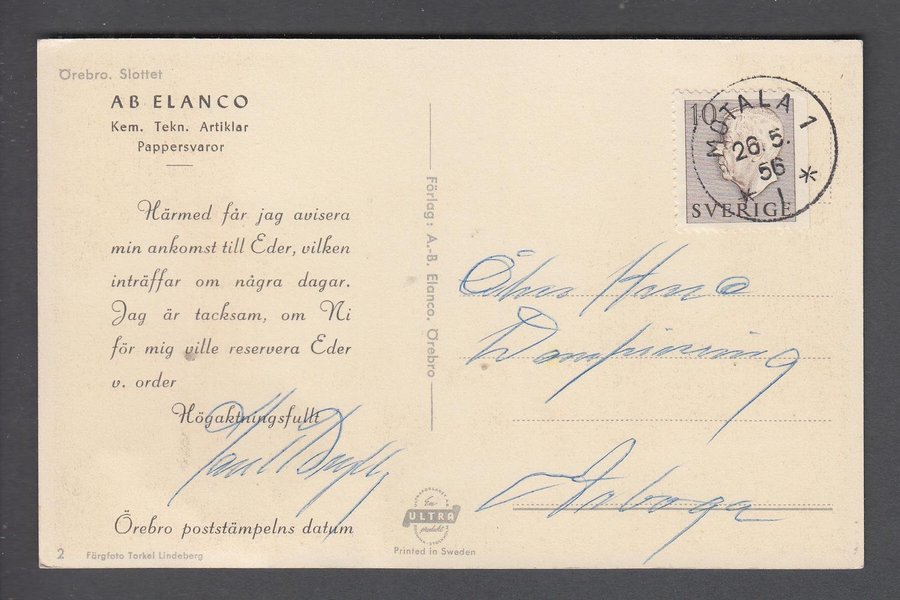 Örebro. Slottet
AB ELANCO
Kem. Tekn. Artiklar
Pappersvaror
Härmed får jag avisera
min ankomst till Eder, vilken
inträffar om några dagar.
Jag är tacksam, om Ni
för mig ville reservera Eder
v. order
Högaktningsfullt
Örebro poststämpelns datum
2 Färgfoto Torkel Lindeberg
Förlag: A.-B. Elanco. Örebro
En
ULTRA
produkt
Printed in Sweden
10
SVERIGE
MOTALA 1
26.5.
56
* 1 *
Arboga